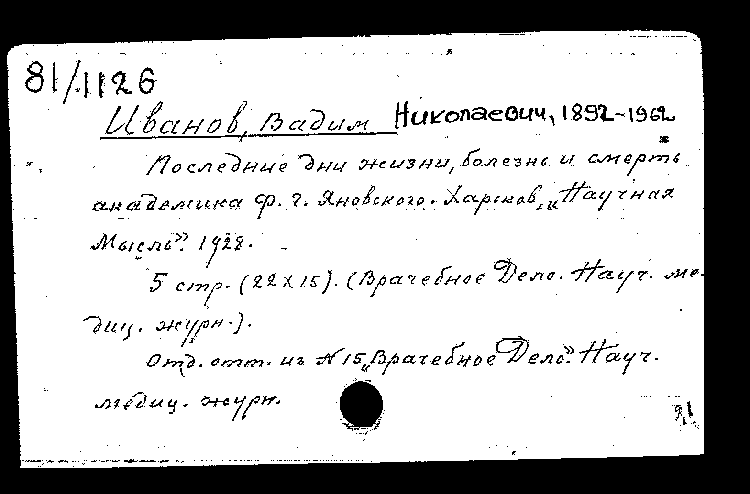 81/1126
Иванов, Вадим Николаевич, 1892-1962
Последние дни жизни, болезнь и смерть
академика Ф. Г. Яновского. Харьков, „Научная
Мысль". 1928.
5 стр. (22х15). (Врачебное Дело. Науч. ме-
диц. журн.).
Отд. отт. из № 15 „Врачебное Дело". Науч.
медиц. журн.